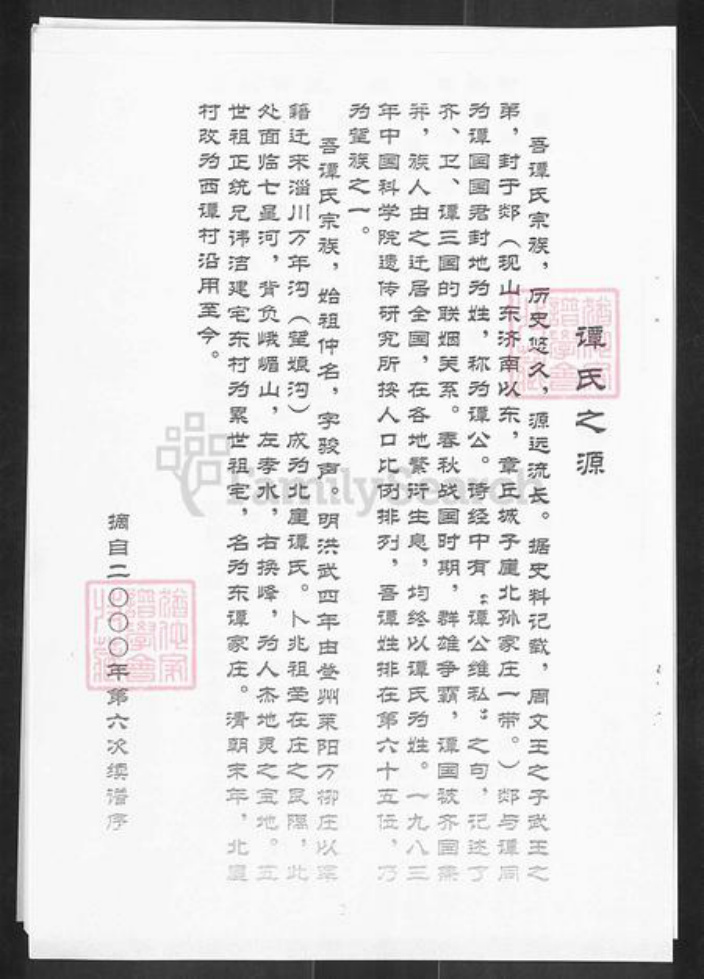 谭氏之源
吾谭氏宗族，历史悠久，源远流长。据史料记载，周文王之子武王之
弟，封于郯（现山东济南以东，章丘城子崖北孙家庄一带。）郯与谭同
为谭国国君封地为姓，称为谭公。诗经中有“谭公维私”之句，记述了
齐、卫、谭三国的联姻关系。春秋战国时期，群雄争霸，谭国被齐国
并，族人由之迁居全国，在各地繁衍生息，均终以谭氏为姓。一九八三
年中国科学院遗传研究所按人口比例排列，吾谭姓排在第六十五位，乃
为望族之一。
吾谭氏宗族，始祖仲名，字骏声。明洪武四年由登州莱阳万柳庄以军
籍迁来淄川万年沟（望娘沟）成为北崖谭氏。卜兆祖茔在庄之艮隅，此
处面临七星河，背负峨嵋山，左孝水，右换峰，为人杰地灵之宝地。五
世祖正统兄讳洁建宅东村为累世祖宅，名为东谭家庄。清朝末年，北崖
村改为西谭村沿用至今。
摘自二〇〇〇年第六次续谱序
FamilySearch